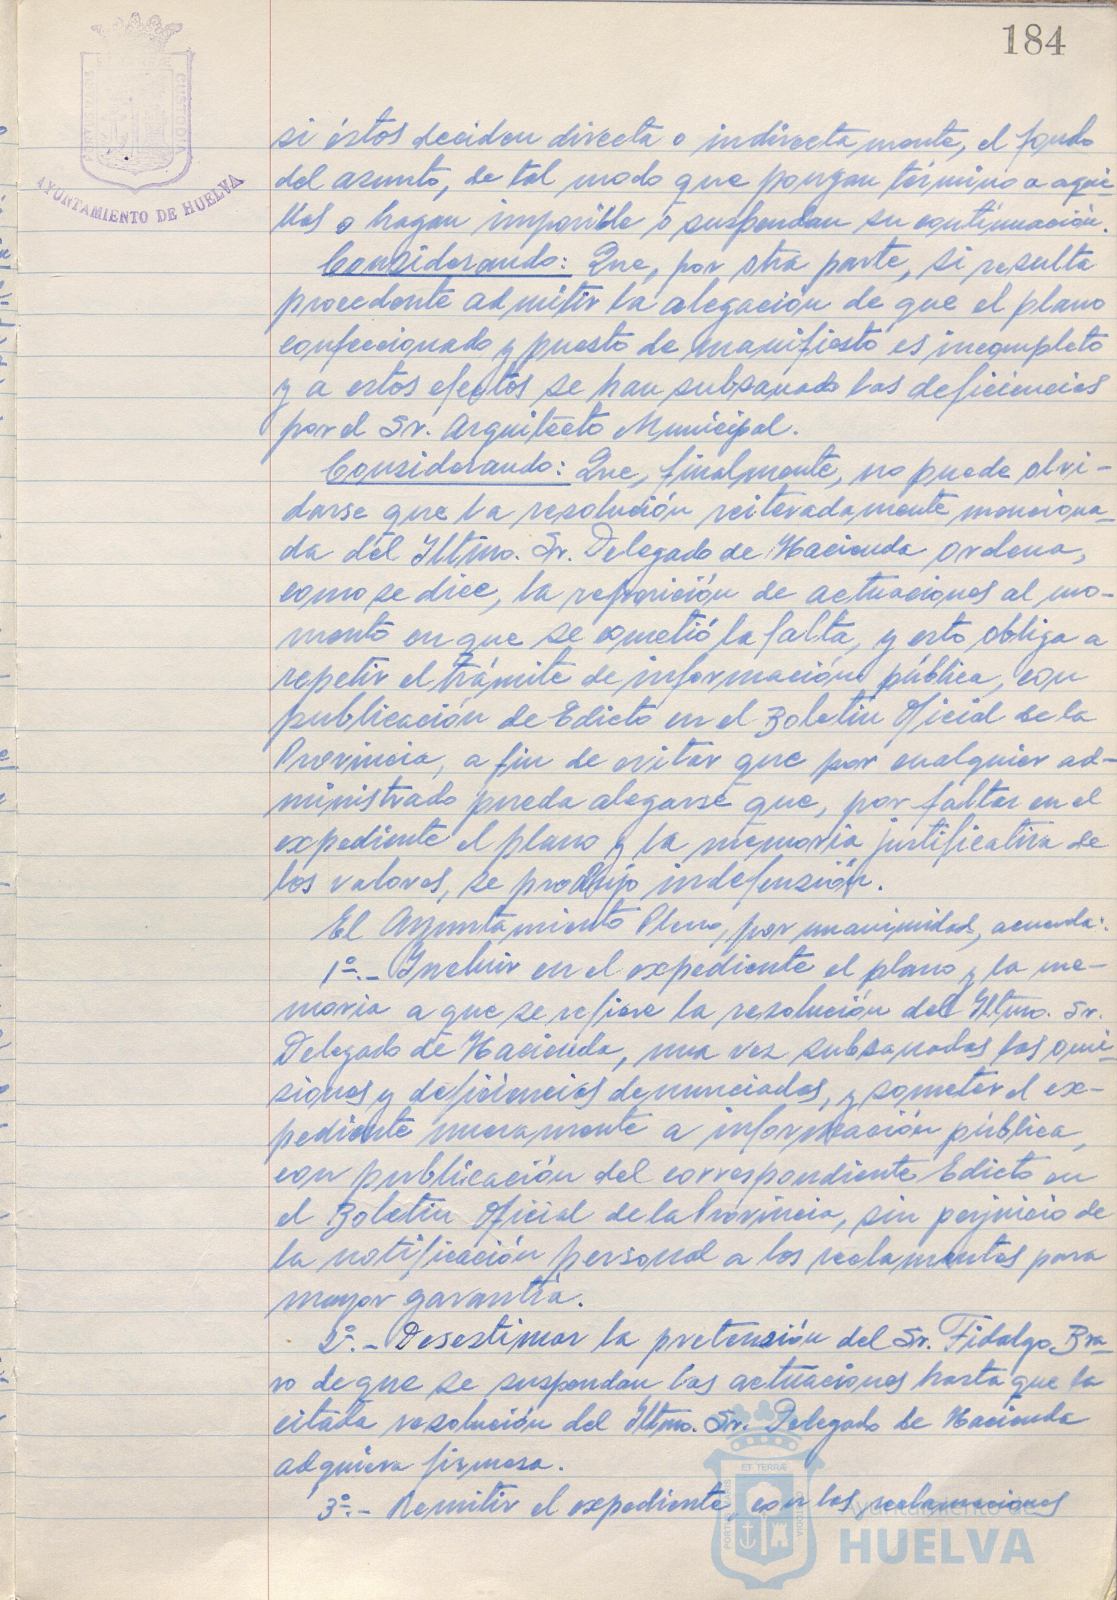 184
PORTUS MARIS ET TERRÆ CUSTODIA
AYUNTAMIENTO DE HUELVA
si éstos deciden directa o indirectamente, el fondo
del asunto, de tal modo que pongan término a aque-
llos o hagan imposible o suspendan su continuación.
Considerando: Que, por otra parte, si resulta
procedente admitir la alegación de que el plano
confeccionado y puesto de manifiesto es incompleto
y a estos efectos se han subsanado las deficiencias
por el Sr. Arquitecto Municipal.
Considerando: Que, finalmente, no puede olvi-
darse que la resolución reiteradamente menciona-
da del Iltmo. Sr. Delegado de Hacienda ordena,
como se dice, la reposición de actuaciones al mo-
mento en que se cometió la falta, y esto obliga a
repetir el trámite de información pública, con
publicación de Edicto en el Boletin Oficial de la
Provincia, a fin de evitar que por cualquier ad-
ministrado pueda alegarse que, por faltar en el
expediente el plano y la memoria justificativa de
los valores, se produjo indefensión.
El Ayuntamiento Pleno, por unanimidad, acuerda:
1º.- Incluir en el expediente el plano y la me-
moria a que se refiere la resolución del Iltmo. Sr.
Delegado de Hacienda, una vez subsanadas las omi-
siones y deficiencias denunciadas, y someter el ex-
pediente nuevamente a información pública,
con publicación del correspondiente Edicto en
el Boletin Oficial de la Provincia, sin perjuicio de
la notificación personal a los reclamantes para
mayor garantía.
2º.- Desestimar la pretensión del Sr. Fidalgo Bra-
vo de que se suspendan las actuaciones hasta que la
citada resolución del Iltmo. Sr. Delegado de Hacienda
adquiera firmeza.
3º.- Remitir el expediente, con las reclamaciones
PORTUS MARIS ET TERRÆ CUSTODIA
Ayuntamiento de
HUELVA